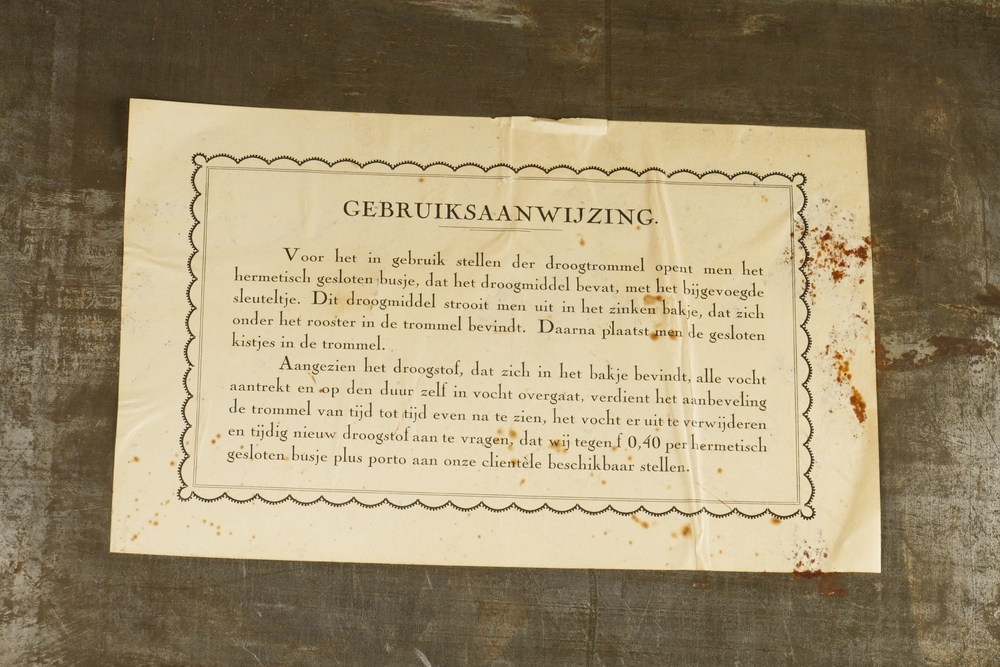 GEBRUIKSAANWIJZING.
Voor het in gebruik stellen der droogtrommel opent men het
hermetisch gesloten busje, dat het droogmiddel bevat, met het bijgevoegde
sleuteltje. Dit droogmiddel strooit men uit in het zinken bakje, dat zich
onder het rooster in de trommel bevindt. Daarna plaatst men de gesloten
kistjes in de trommel.
Aangezien het droogstof, dat zich in het bakje bevindt, alle vocht
aantrekt en op den duur zelf in vocht overgaat, verdient het aanbeveling
de trommel van tijd tot tijd even na te zien, het vocht er uit te verwijderen
en tijdig nieuw droogstof aan te vragen, dat wij tegen f 0,40 per hermetisch
gesloten busje plus porto aan onze clientèle beschikbaar stellen.